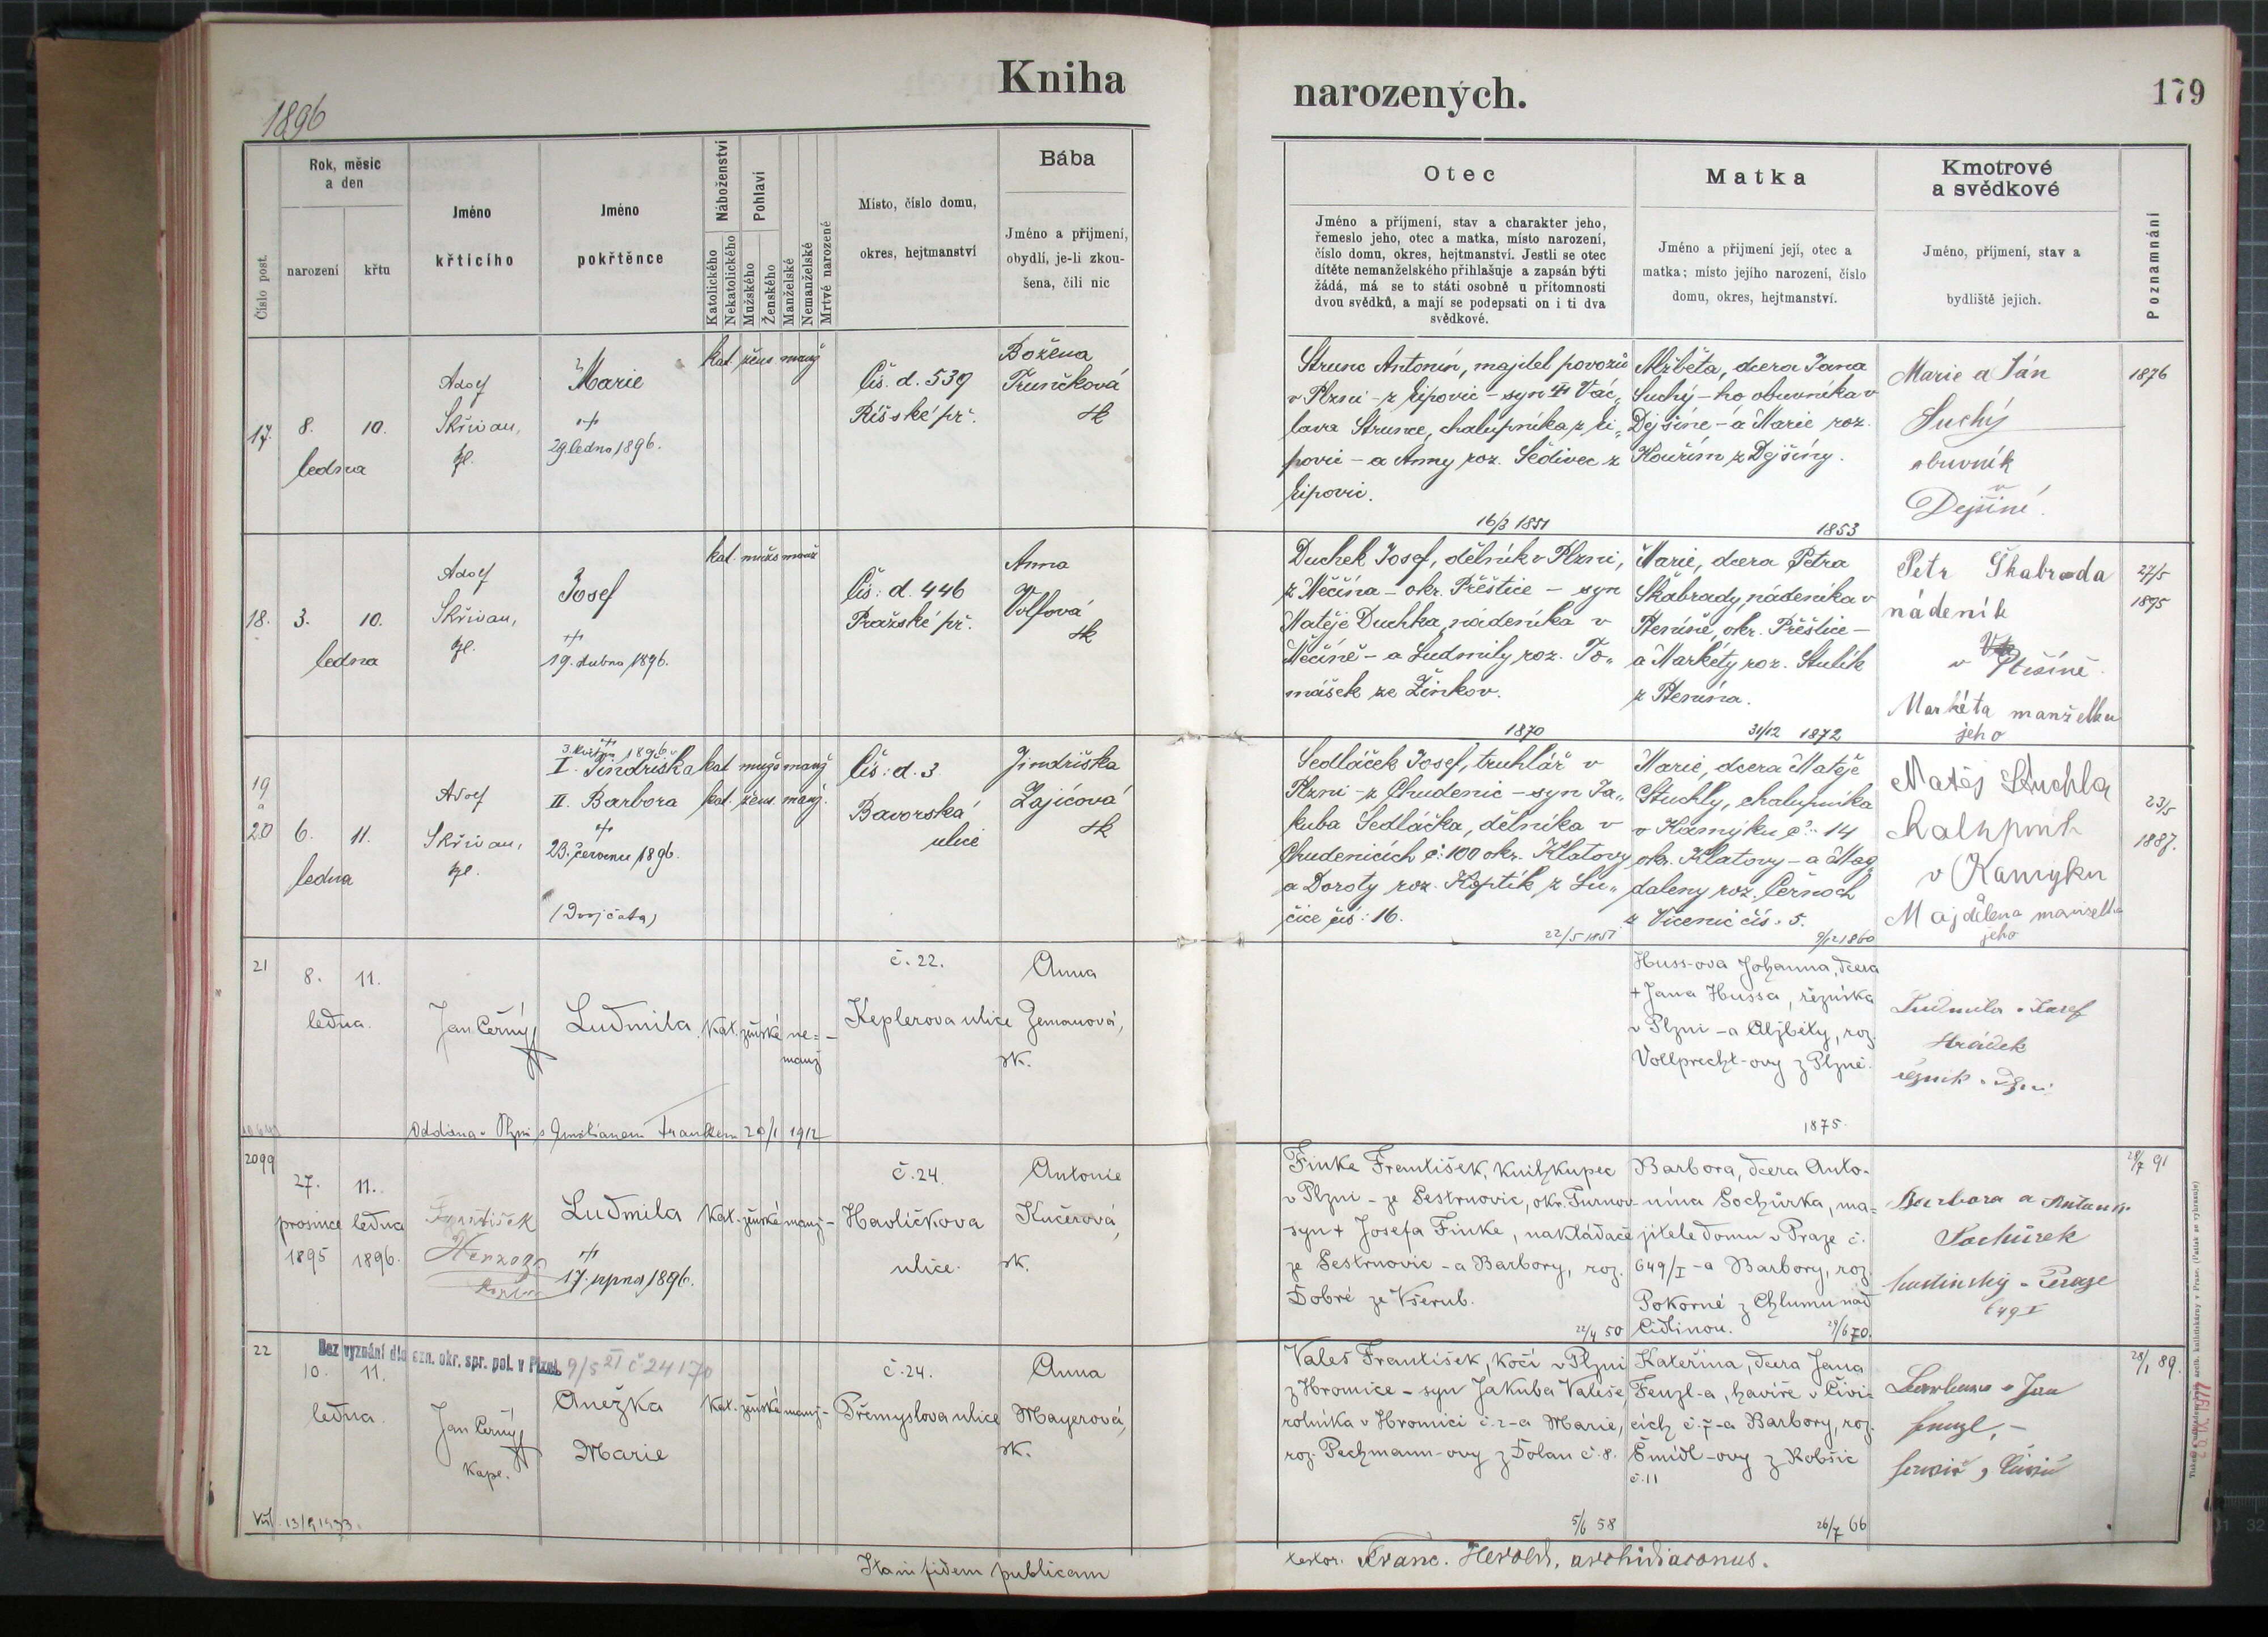 Kniha
narozených.
179
1896
Číslo post.
Rok, měsíc
a den
narození
křtu
Jméno
křticího
Jméno
pokřtěnce
Náboženství
Katolického
Nekatolického
Pohlaví
Mužského
Ženského
Manželské
Nemanželské
Mrtvé narozené
Místo, číslo domu,
okres, hejtmanství
Bába
Jméno a příjmení,
obydlí, je-li zkou-
šena, čili nic
Otec
Jméno a příjmení, stav a charakter jeho,
řemeslo jeho, otec a matka, místo narození,
číslo domu, okres, hejtmanství. Jestli se otec
dítěte nemanželského přihlašuje a zapsán býti
žádá, má se to státi osobně u přítomnosti
dvou svědků, a mají se podepsati on i ti dva
svědkové.
Matka
Jméno a příjmení její, otec a
matka; místo jejího narození, číslo
domu, okres, hejtmanství.
Kmotrové
a svědkové
Jméno, příjmení, stav a
bydliště jejich.
Poznamnání
17.
8.
10.
ledna
Adolf
Skřivan,
Marie
29. ledna 1896.
kat. žens. manž
Čís. d. 539
Říšské př.
Božena
Trunčková
zk
Strunc Antonín, majitel povozů
v Plzni - z Lipovic - syn Vác„
lava Strunce, chalupníka z Li„
povic - a Anny roz. Šedivec z
Lipovic.
16/3 1851
Alžběta, dcera Jana
Suchý-ho obuvníka v
Dejšíně - a Marie roz.
Kouřím z Dejšíny.
1853
Marie a Ján
Suchý
obuvník
v
Dejšíně.
1876
18.
3.
10.
ledna
Adolf
Skřivan,
Josef
19. dubna 1896.
kat. mužs manž
Čís: d. 446
Pražské př.
Anna
Volfová
zk
Duchek Josef, dělník v Plzni,
z Měčína - okr. Přeštice - syn
Matěje Duchka, nádeníka v
Měčíně - a Ludmily roz. To„
mášek ze Žinkov.
1870
Marie, dcera Petra
Škabrady, nádeníka v
Pteníně, okr. Přeštice -
a Markéty roz. Stulík
z Ptenína.
31/12 1872
Petr Škabroda
nádeník
v
Markéta manželka
jeho
27/5
1895
19
a
20
6.
11.
ledna
Adolf
Skřivan,
3. května 1896
I. Jindřiška
II. Barbora
23. července 1896.
(Dvojčata)
kat mužs manž
kat. žens. manž.
Čís: d. 3
Bavorská
ulice
Jindřiška
Zajícová
zk
Sedláček Josef, truhlář v
Plzni - z Chudenic - syn Ja„
kuba Sedláčka, dělníka v
Chudenicích č: 100 okr. Klatovy
a Doroty roz. Koptík z Lu„
čice čís: 16.
22/5 1857
Marie, dcera Matěje
Stuchly, chalupníka
v Kamýku č: 14
okr. Klatovy - a Mag„
daleny roz. Černoch
z Vícenic čís: 5.
9/12 1860
Matěj Stuchla
chalupník
v Kamyku
Majdelena manzelka
jeho
23/5
1887.
21
8.
11.
ledna.
Jan Černý
Ludmila
Kat. ženské ne=
manž
č. 22.
Keplerova ulice
Anna
Zemanová,
zk.
Huss-ova Johanna, dcera
+ Jana Hussa, řezníka
v Plzni - a Alžběty, roz.
Vollprecht-ovy z Plzně.
1875
Ludmila a Josef
Hrádek
řezník v Plzni
Oddána v Plzni s Emilianem Frankem 20/1 1912
2099
27.
11.
prosince ledna
1895 1896.
František
Herzog
Ludmila
17. srpna 1896.
Kat. ženské manž-
č. 24.
Havlíčkova
ulice.
Antonie
Kučerová,
zk.
Finke František, knihkupec
v Plzni - ze Sestrnovic, okr. Turnov
syn + Josefa Finke, nakladače
ze Sestrnovic - a Barbory, roz.
Dobré ze Všerub.
22/4 50
Barbora, dcera Anto-
nína Sochůrka, ma=
jitele domu v Praze č.
649/I - a Barbory, roz.
Pokorné z Chlumu nad
Cidlinou.
29/6 70.
Barbora a Antonín
Sochůrek
hostinský v Praze
649 I
28/7 91
22
Bez vyznání dle ozn. okr. spr. pol. v Plzni 9/5 21 č 24170
10.
11.
ledna.
Jan Černý
Kapl.
Anežka
Marie
Kat. ženské manž-
č. 24.
Přemyslova ulice
Anna
Mayerová,
zk.
Valeš František, kočí v Plzni
z Hromice - syn Jakuba Valeše,
rolníka v Hromici č. 2 - a Marie,
roz. Pechmann-ovy z Dolan č. 8.
5/6 58
Kateřina, dcera Jana
Fenzl-a, havíře v Čivi=
cích č. 7 - a Barbory, roz.
Šmídl-ovy z Kobšic
č. 11
26/7 66
Barbora a Jan
Fenzl, -
28/1 89.
13/9 1933.
Ita in fidem publicam
testor. Franc. Herold, archidiaconus.